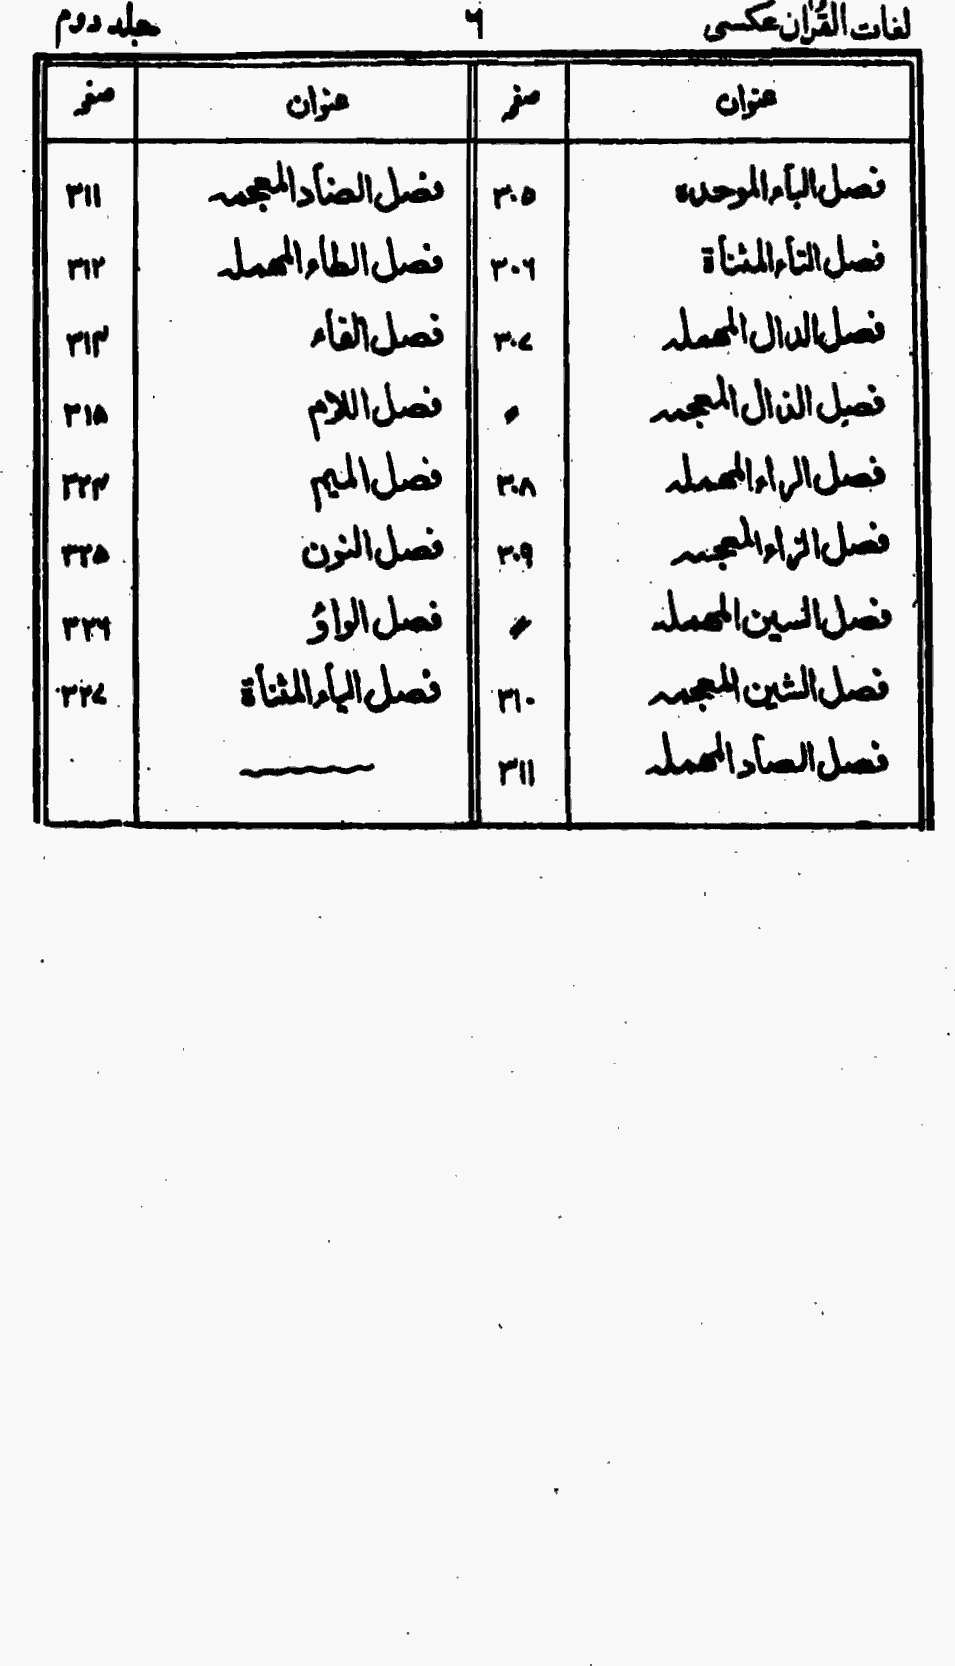 لغات القرآن عکسی ۶ جلد دوم
عنوان صفحہ عنوان صفحہ
فصل البآء الموحدہ ۳۰۵ فصل الضآد المعجمہ ۳۱۱
فصل التآء المثنأة ۳۰۶ فصل الطآء المہملہ ۳۱۲
فصل الدال المہملہ ۳۰۷ فصل الفآء ۳۱۳
فصل الذال المعجمہ 〃 فصل اللام ۳۱۵
فصل الراء المہملہ ۳۰۸ فصل المیم ۳۲۴
فصل الزاء المعجمہ ۳۰۹ فصل النون ۳۲۵
فصل السین المہملہ 〃 فصل الواؤ ۳۲۶
فصل الشین المعجمہ ۳۱۰ فصل الیآء المثنأة ۳۲۷
فصل الصآد المہملہ ۳۱۱